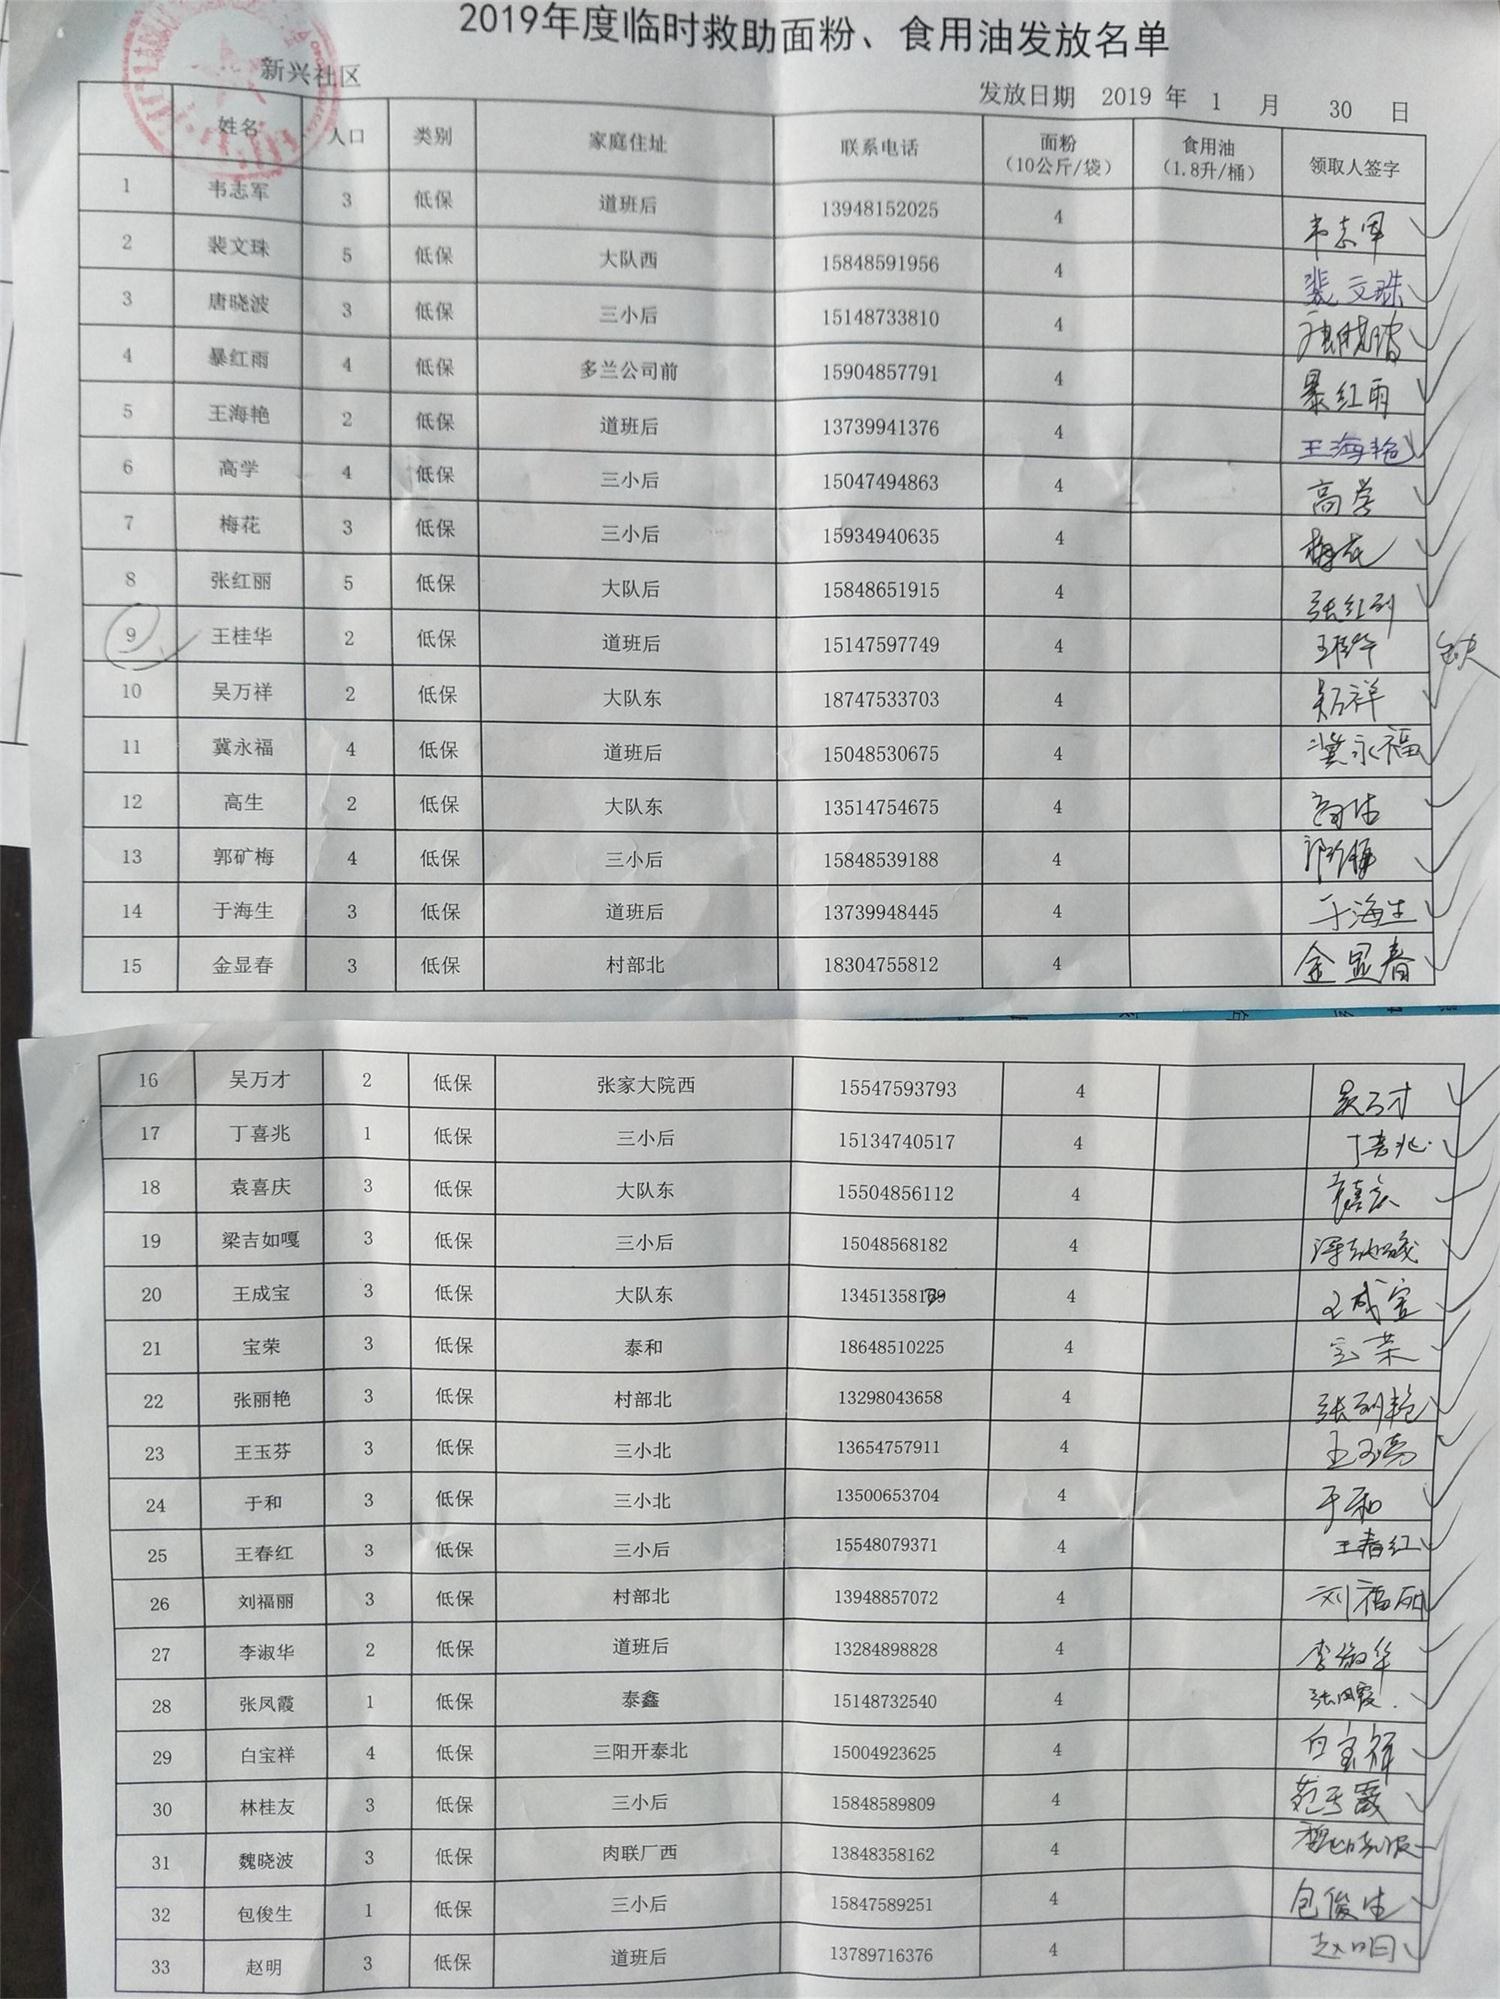 2019年度临时救助面粉、食用油发放名单
新兴社区 发放日期 2019 年 1 月 30 日
姓名 人口 类别 家庭住址 联系电话 面粉（10公斤/袋） 食用油（1.8升/桶） 领取人签字
1 韦志军 3 低保 道班后 13948152025 4 韦志军
2 裴文珠 5 低保 大队西 15848591956 4 裴文珠
3 唐晓波 3 低保 三小后 15148733810 4 唐晓波
4 暴红雨 4 低保 多兰公司前 15904857791 4 暴红雨
5 王海艳 2 低保 道班后 13739941376 4 王海艳
6 高学 4 低保 三小后 15047494863 4 高学
7 梅花 3 低保 三小后 15934940635 4 梅花
8 张红丽 5 低保 大队后 15848651915 4 张红丽
9 王桂华 2 低保 道班后 15147597749 4 王桂华 缺
10 吴万祥 2 低保 大队东 18747533703 4 吴万祥
11 冀永福 4 低保 道班后 15048530675 4 冀永福
12 高生 2 低保 大队东 13514754675 4
13 郭矿梅 4 低保 三小后 15848539188 4 郭矿梅
14 于海生 3 低保 道班后 13739948445 4 于海生
15 金显春 3 低保 村部北 18304755812 4 金显春
16 吴万才 2 低保 张家大院西 15547593793 4 吴万才
17 丁喜兆 1 低保 三小后 15134740517 4 丁喜兆
18 袁喜庆 3 低保 大队东 15504856112 4 袁喜庆
19 梁吉如嘎 3 低保 三小后 15048568182 4
20 王成宝 3 低保 大队东 4 王成宝
21 宝荣 3 低保 泰和 18648510225 4 宝荣
22 张丽艳 3 低保 村部北 13298043658 4 张丽艳
23 王玉芬 3 低保 三小北 13654757911 4 王玉芬
24 于和 3 低保 三小北 13500653704 4 于和
25 王春红 3 低保 三小后 15548079371 4 王春红
26 刘福丽 3 低保 村部北 13948857072 4 刘福丽
27 李淑华 2 低保 道班后 13284898828 4 李淑华
28 张凤霞 1 低保 泰鑫 15148732540 4 张凤霞
29 白宝祥 4 低保 三阳开泰北 15004923625 4 白宝祥
30 林桂友 3 低保 三小后 15848589809 4
31 魏晓波 3 低保 肉联厂西 13848358162 4 魏晓波
32 包俊生 1 低保 三小后 15847589251 4 包俊生
33 赵明 3 低保 道班后 13789716376 4 赵明